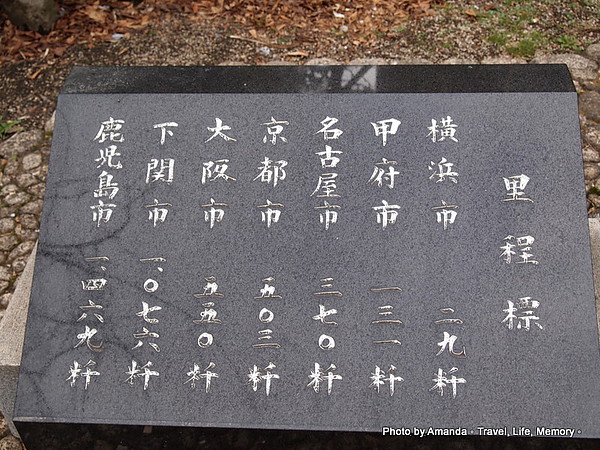 里程標
横浜市 二九粁
甲府市 一三一粁
名古屋市 三七〇粁
京都市 五〇三粁
大阪市 五五〇粁
下関市 一、〇七六粁
鹿児島市 一、四六九粁
Photo by Amanda - Travel, Life, Memory -